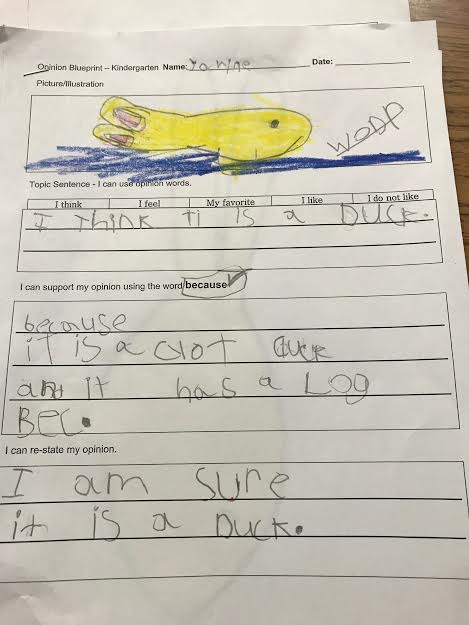 Opinion Blueprint – Kindergarten Name: Date:
Picture/Illustration
Topic Sentence - I can use opinion words.
I think I feel My favorite I like I do not like
I think ti is a Duck.
I can support my opinion using the word because
because
it is a clot Duck
and it has a Log
Bec.
I can re-state my opinion.
I am sure
it is a Duck.